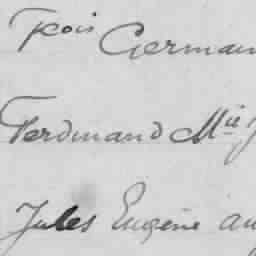 Fcois German
Ferdinand Mie
Jules Eugène au